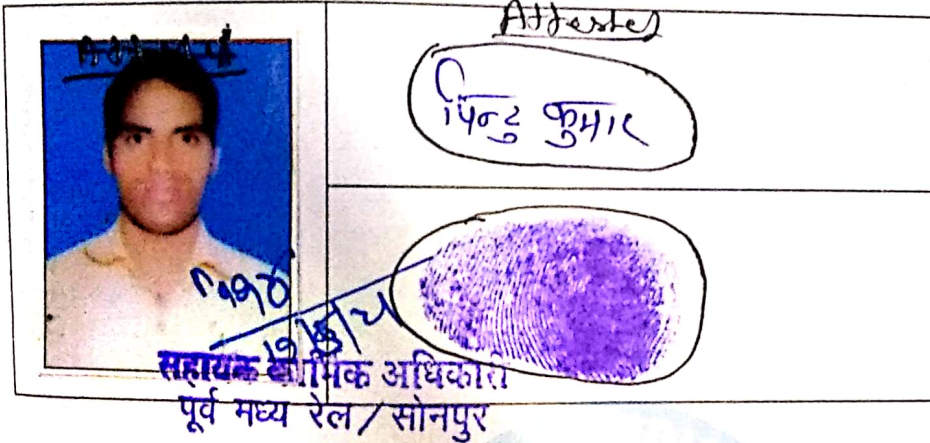 Attested
पिन्टु कुमार
सहायक कार्मिक अधिकारी
पूर्व मध्य रेल / सोनपुर